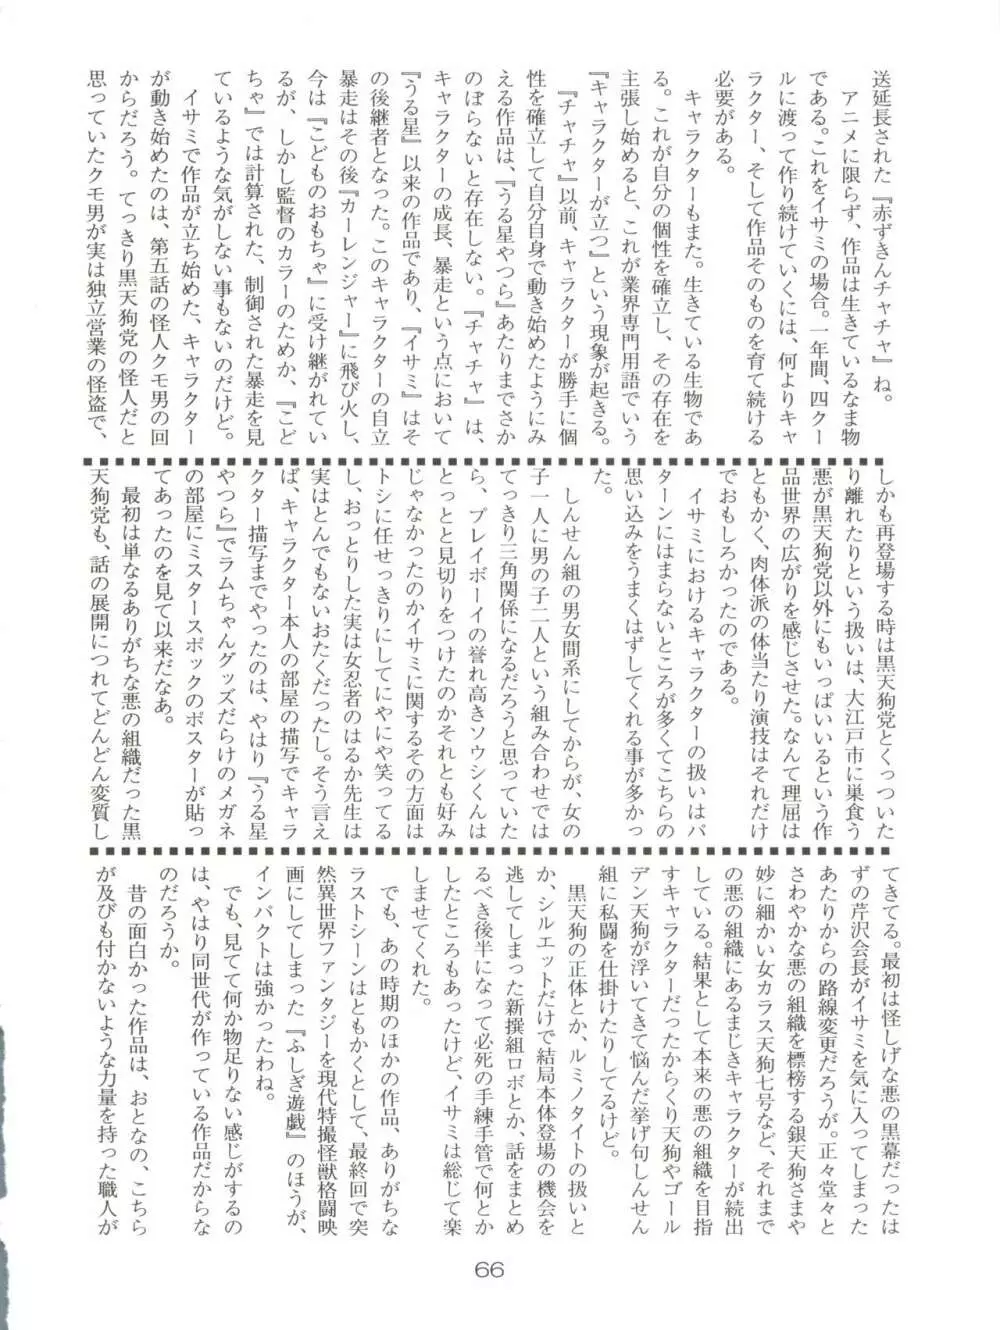 送延長された『赤ずきんチャチャ』ね。
　アニメに限らず、作品は生きているなま物
である。これをイサミの場合。一年間、四クー
ルに渡って作り続けていくには、何よりキャ
ラクター、そして作品そのものを育て続ける
必要がある。
　キャラクターもまた。生きている生物であ
る。これが自分の個性を確立し、その存在を
主張し始めると、これが業界専門用語でいう
『キャラクターが立つ』という現象が起きる。
　『チャチャ』以前、キャラクターが勝手に個
性を確立して自分自身で動き始めたようにみ
える作品は、『うる星やつら』あたりまでさか
のぼらないと存在しない。『チャチャ』は、
キャラクターの成長、暴走という点において
『うる星』以来の作品であり、『イサミ』はそ
の後継者となった。このキャラクターの自立
暴走はその後『カーレンジャー』に飛び火し、
今は『こどものおもちゃ』に受け継がれてい
るが、しかし監督のカラーのためか、『こど
ちゃ』では計算された、制御された暴走を見
ているような気がしない事もないのだけど。
　イサミで作品が立ち始めた、キャラクター
が動き始めたのは、第五話の怪人クモ男の回
からだろう。てっきり黒天狗党の怪人だと
思っていたクモ男が実は独立営業の怪盗で、
しかも再登場する時は黒天狗党とくっついた
り離れたりという扱いは、大江戸市に巣食う
悪が黒天狗党以外にもいっぱいいるという作
品世界の広がりを感じさせた。なんて理屈は
ともかく、肉体派の体当たり演技はそれだけ
でおもしろかったのである。
　イサミにおけるキャラクターの扱いはパ
ターンにはまらないところが多くてこちらの
思い込みをうまくはずしてくれる事が多かっ
た。
　しんせん組の男女間系にしてからが、女の
子一人に男の子二人という組み合わせでは
てっきり三角関係になるだろうと思っていた
ら、プレイボーイの誉れ高きソウシくんは
とっとと見切りをつけたのかそれとも好み
じゃなかったのかイサミに関するその方面は
トシに任せっきりにしてにやにや笑ってる
し、おっとりした実は女忍者のはるか先生は
実はとんでもないおたくだったし。そう言え
ば、キャラクター本人の部屋の描写でキャラ
クター描写までやったのは、やはり『うる星
やつら』でラムちゃんグッズだらけのメガネ
の部屋にミスタースポックのポスターが貼っ
てあったのを見て以来だなあ。
　最初は単なるありがちな悪の組織だった黒
天狗党も、話の展開につれてどんどん変質し
てきてる。最初は怪しげな悪の黒幕だったは
ずの芹沢会長がイサミを気に入ってしまった
あたりからの路線変更だろうが。正々堂々と
さわやかな悪の組織を標榜する銀天狗さまや
妙に細かい女カラス天狗七号など、それまで
の悪の組織にあるまじきキャラクターが続出
している。結果として本来の悪の組織を目指
すキャラクターだったからくり天狗やゴール
デン天狗が浮いてきて悩んだ挙げ句しんせん
組に私闘を仕掛けたりしてるけど。
　黒天狗の正体とか、ルミノタイトの扱いと
か、シルエットだけで結局本体登場の機会を
逃してしまった新撰組ロボとか、話をまとめ
るべき後半になって必死の手練手管で何とか
したところもあったけど、イサミは総じて楽
しませてくれた。
　でも、あの時期のほかの作品、ありがちな
ラストシーンはともかくとして、最終回で突
然異世界ファンタジーを現代特撮怪獣格闘映
画にしてしまった『ふしぎ遊戯』のほうが、
インパクトは強かったわね。
　でも、見てて何か物足りない感じがするの
は、やはり同世代が作っている作品だからな
のだろうか。
　昔の面白かった作品は、おとなの、こちら
が及びも付かないような力量を持った職人が
66